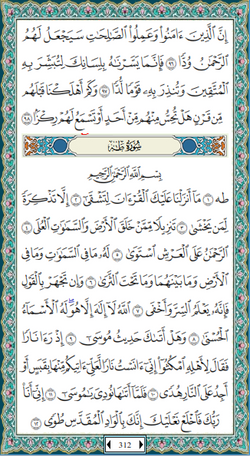 إِنَّ ٱلَّذِينَ ءَامَنُوا۟ وَعَمِلُوا۟ ٱلصَّٰلِحَٰتِ سَيَجْعَلُ لَهُمُ
ٱلرَّحْمَٰنُ وُدًّا ٩٦ فَإِنَّمَا يَسَّرْنَٰهُ بِلِسَانِكَ لِتُبَشِّرَ بِهِ
ٱلْمُتَّقِينَ وَتُنذِرَ بِهِۦ قَوْمًا لُّدًّا ٩٧ وَكَمْ أَهْلَكْنَا قَبْلَهُم
مِّن قَرْنٍ هَلْ تُحِسُّ مِنْهُم مِّنْ أَحَدٍ أَوْ تَسْمَعُ لَهُمْ رِكْزًۢا ٩٨
سُورَةُ طه
بِسْمِ ٱللَّهِ ٱلرَّحْمَٰنِ ٱلرَّحِيمِ
طه ١ مَآ أَنزَلْنَا عَلَيْكَ ٱلْقُرْءَانَ لِتَشْقَىٰٓ ٢ إِلَّا تَذْكِرَةً
لِّمَن يَخْشَىٰ ٣ تَنزِيلًا مِّمَّنْ خَلَقَ ٱلْأَرْضَ وَٱلسَّمَٰوَٰتِ ٱلْعُلَى ٤
ٱلرَّحْمَٰنُ عَلَى ٱلْعَرْشِ ٱسْتَوَىٰ ٥ لَهُۥ مَا فِى ٱلسَّمَٰوَٰتِ وَمَا فِى
ٱلْأَرْضِ وَمَا بَيْنَهُمَا وَمَا تَحْتَ ٱلثَّرَىٰ ٦ وَإِن تَجْهَرْ بِٱلْقَوْلِ
فَإِنَّهُۥ يَعْلَمُ ٱلسِّرَّ وَأَخْفَى ٧ ٱللَّهُ لَآ إِلَٰهَ إِلَّا هُوَ لَهُ ٱلْأَسْمَآءُ
ٱلْحُسْنَىٰ ٨ وَهَلْ أَتَىٰكَ حَدِيثُ مُوسَىٰٓ ٩ إِذْ رَءَا نَارًا
فَقَالَ لِأَهْلِهِ ٱمْكُثُوٓا۟ إِنِّىٓ ءَانَسْتُ نَارًا لَّعَلِّىٓ ءَاتِيكُم مِّنْهَا بِقَبَسٍ أَوْ
أَجِدُ عَلَى ٱلنَّارِ هُدًى ١٠ فَلَمَّآ أَتَىٰهَا نُودِىَ يَٰمُوسَىٰٓ ١١ إِنِّىٓ أَنَا۠
رَبُّكَ فَٱخْلَعْ نَعْلَيْكَ إِنَّكَ بِٱلْوَادِ ٱلْمُقَدَّسِ طُوًى ١٢
312